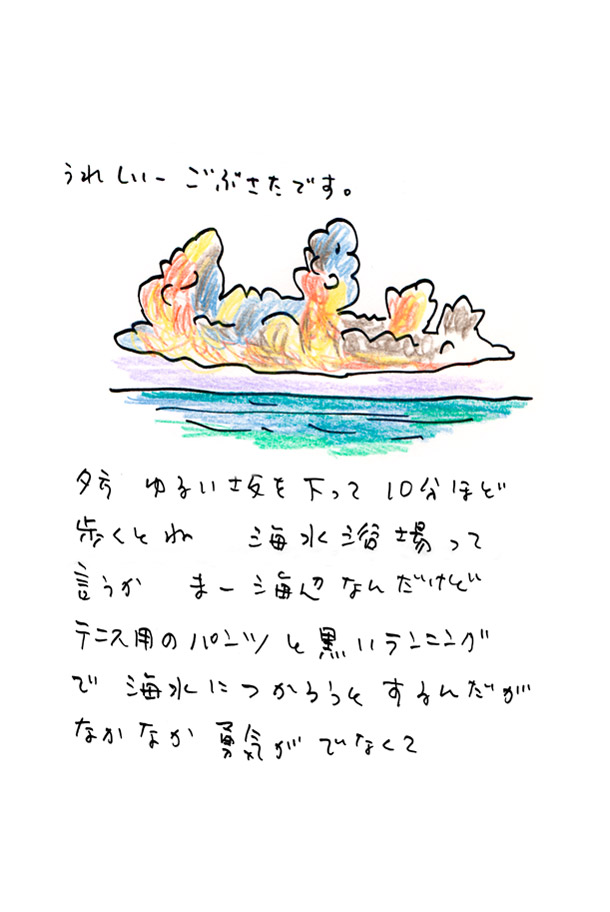 うれしいー ごぶさたです。
夕方 ゆるい坂を下って 10分ほど
歩くとね 海水浴場って
言うか まー海辺なんだけど
テニス用のパンツと黒いランニング
で 海水につかろうとするんだが
なかなか勇気がでなくて